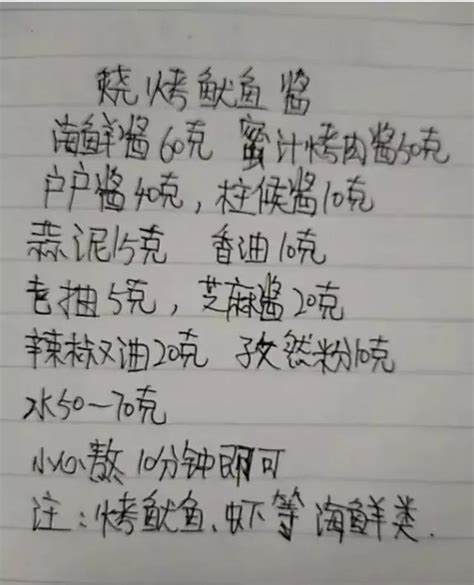 烧烤鱿鱼酱
海鲜酱60克 蜜汁烤肉酱50克
户户酱40克，柱候酱10克
蒜泥15克 香油10克
老抽5克，芝麻酱20克
辣椒油20克 孜然粉10克
水50—70克
小火熬10分钟即可
注：烤鱿鱼、虾等海鲜类.